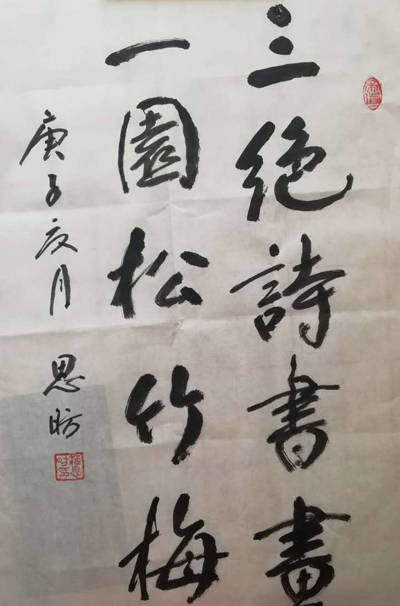 三絶詩書畫
一園松竹梅
庚子夏月 思昉